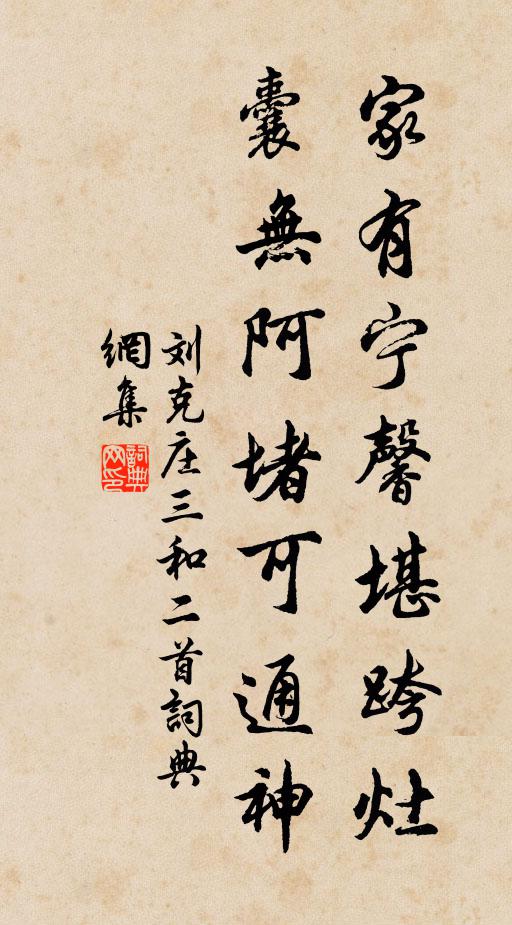 家有宁馨堪跨灶
囊無阿堵可通神
刘克庄三和二首詞典
網集
詞典网印